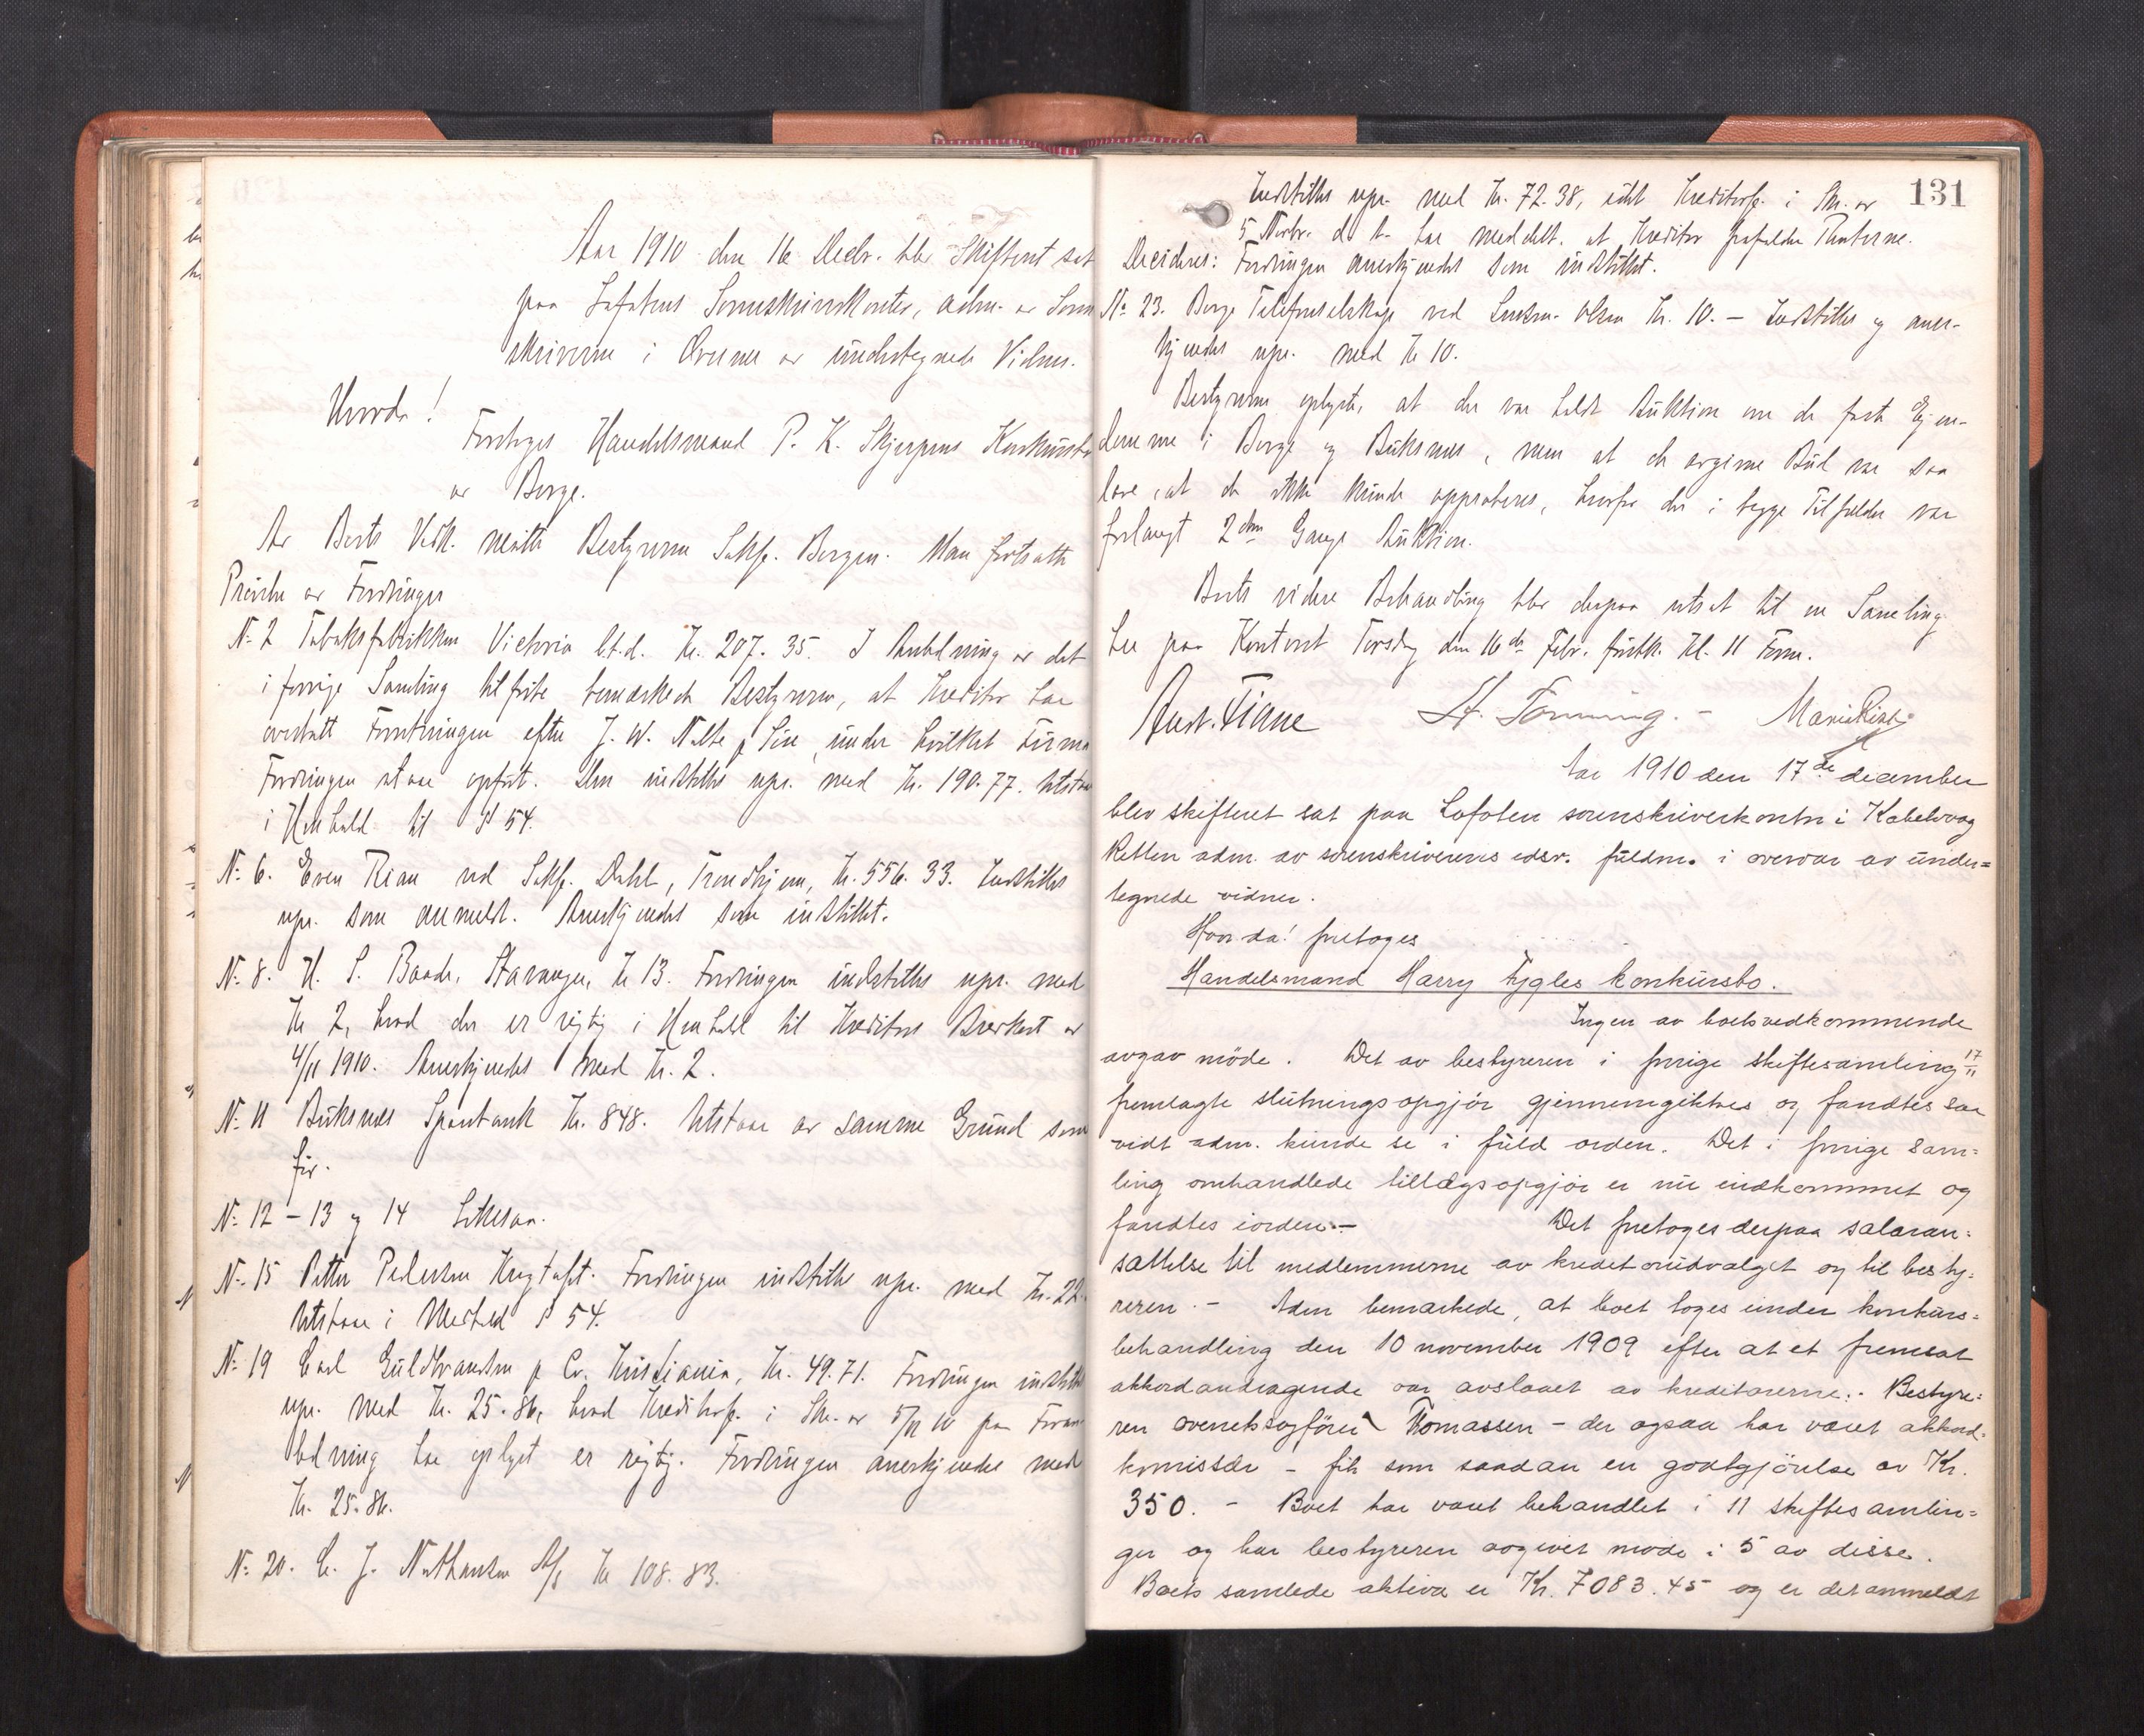 Aar 1910 den 16 Decbr. blev Skifteret sat
paa Lofotens Sorenskriverkontor, adm. av Soren
skriveren i Overvær av undertegnede Vidner.
Hvorda!
Foretoges Handelsmand P. K. Skjerpens Konkursbo
av Borge.
Av Boets Vedk. mötte Bestyreren Sakf. Bergen. Man fortsatte
Prövelse av Fordringer
No 2 Tobaksfabrikken Victoria Lt.d. Kr. 207.35. I Anledning av det
i forrige Samling tilförte bemærkede Bestyreren, at Kreditor har
overtatt Forretningen efter J. W. Nolte & Sön, under hvilket Firma
Fordringen staar opfört. Den indstilles upr. med Kr. 190.77. Utstaar
i Henhold til § 54.
No 6. Even Rian ved Sakf. Dahl, Trondhjem, Kr. 556.33. Indstilles
upr. som anmeldt. Anerkjendes som indstillet.
No 8. H. S. Baade, Stavanger, Kr 13. Fordringen indstilles upr. med
Kr 2, hvad der er rigtig i Henhold til Kreditors Brevkort av
4/11 1910. Anerkjendes med Kr. 2.
No 11 Buksnes Sparebank Kr. 848. Utstaar av samme Grund som
för.
No 12 - 13 og 14 Likesaa.
No 15 Petter Pedersen Fordringen indstilles upr. med Kr. 22.
Utstaar i Medhold § 54.
No 19 Carl Guldbransen & Co. Kristiania, Kr. 49.71. Fordringen indstilles
upr. med Kr. 25.86, hvad Kreditorf. i Skr. av 5/11 10 paa Foran
ledning har oplyst er rigtig. Fordringen anerkjendes med
Kr. 25.86.
No 20. C. J. Nathansen A/s Kr 108.83.
131
Indstilles upr. med Kr. 72.38, idet Kreditorf. i Skr. av
5 Novbr. d. A. har meddelt, at Kreditor frafalder Renterne.
Decideres: Fordringen anerkjendes som indstillet.
No 23. Borge Telefonselskap ved Lensm. Olsen Kr. 10. - Indstilles og aner-
kjendes upr. med Kr 10.
Bestyreren oplyste, at der var holdt Auktion over de faste Ejen-
domme i Borge og Buksnes, men at de avgivne Bud var saa
lave, at de ikke kunde approberes, hvorfor der i begge Tilfælder var
forlangt 2den Gangs Auktion.
Boets videre Behandling blev derpaa utsat til en Samling
her paa Kontoret Torsdag den 16de Febr. förstk. Kl. 11 Form.
Aar 1910 den 17de december
blev skifteret sat paa Lofoten sorenskriverkontor i Kabelvaag
Retten adm. av sorenskriverens edsv. fuldm. i overvær av under=
tegnede vidner.
Hvorda! foretoges
Handelsmand Harry Fygles konkursbo.
Ingen av boets vedkommende
avgav möde. Det av bestyreren i forrige skiftesamling 17/11
fremlagte slutningsopgjör gjennemgikkes og fandtes saa
vidt adm. kunde se i fuld orden. Det i forrige sam=
ling omhandlede tillægsopgjör er nu indkommet og
fandtes iorden.- Det foretoges derpaa salæran=
sættelse til medlemmerne av kreditorudvalget og til besty=
reren.- Adm bemærkede, at boet toges under konkurs=
behandling den 10 november 1909 efter at et fremsat
akkordandragende var avslaaet av kreditorerne.- Bestyre=
ren overretssagförer Thomassen - der ogsaa har været akkord=
komissær - fik som saadan en godtgjörelse av Kr.
350. - Boet har været behandlet i 11 skiftesamlin=
ger og har bestyreren avgivet möde i 5 av disse.
Boets samlede aktiva er Kr. 7083.45 og er det anmeldt